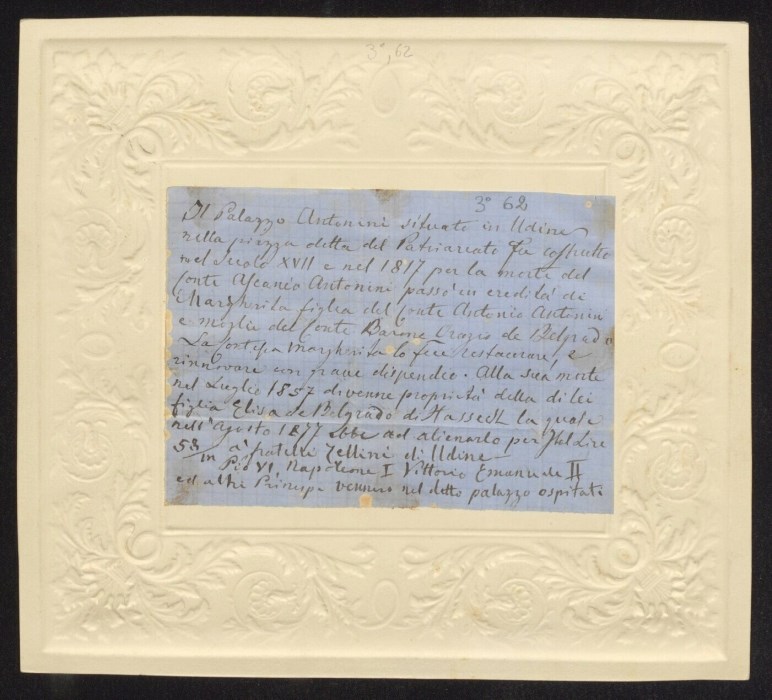 3°, 62
3° 62
Il Palazzo Antonini situato in Udine
nella piazza detta del Patriarcato fu costrutto
nel secolo XVII e nel 1817 per la morte del
Conte Ascanio Antonini passò in eredità di
Margherita figlia del Conte Antonio Antonini
e moglie del Conte Barone Orazio de Belgrado
La Contessa Margherita lo fece restaurare, e
rinnovare con grave dispendio. Alla sua morte
nel Luglio 1857 divenne proprietà della di lei
figlia Elisa de Belgrado di Hassek la quale
nell'Agosto 1877 ebbe ad alienarlo per Lire
a' fratelli Tellini di Udine
Pio VI, Napoleone I Vittorio Emanuele II
ed altri Principi vennero nel detto palazzo ospitati